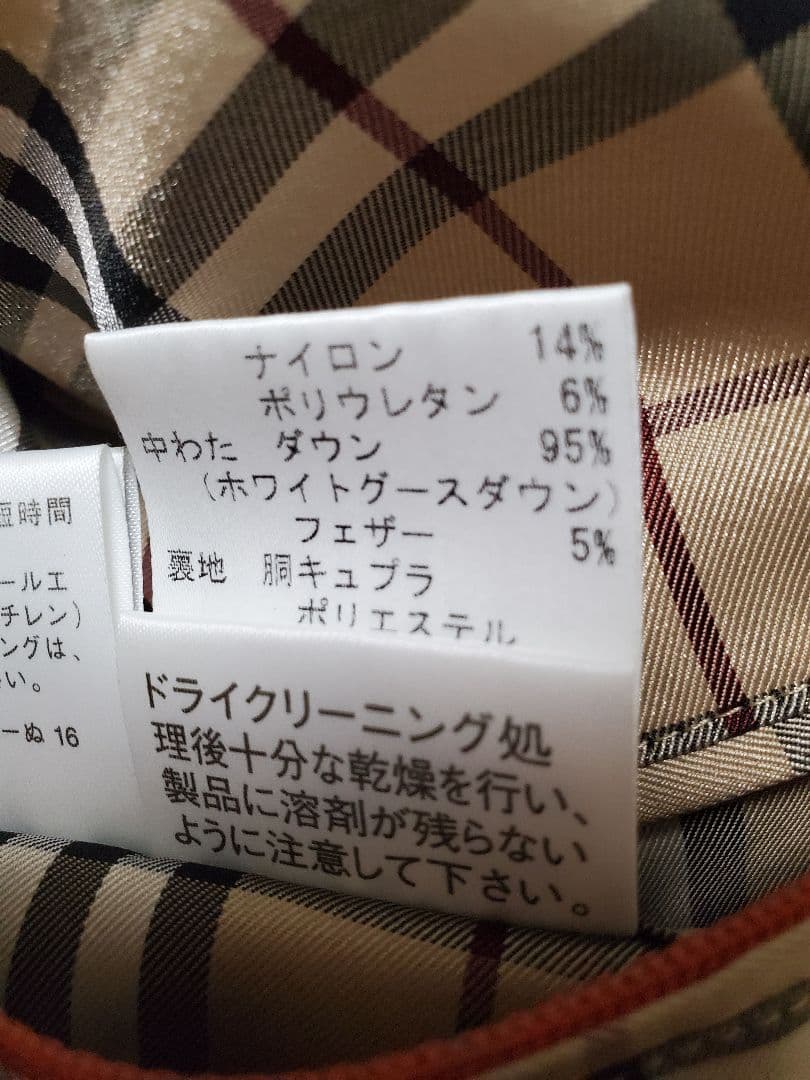 ナイロン 14%
ポリウレタン 6%
中わた ダウン 95%
(ホワイトグースダウン)
フェザー 5%
裏地 胴キュプラ
ポリエステル
ドライクリーニング処
理後十分な乾燥を行い、
製品に溶剤が残らない
ように注意して下さい。
短時間
ールエ
チレン)
ングは、
い。
ーぬ 16